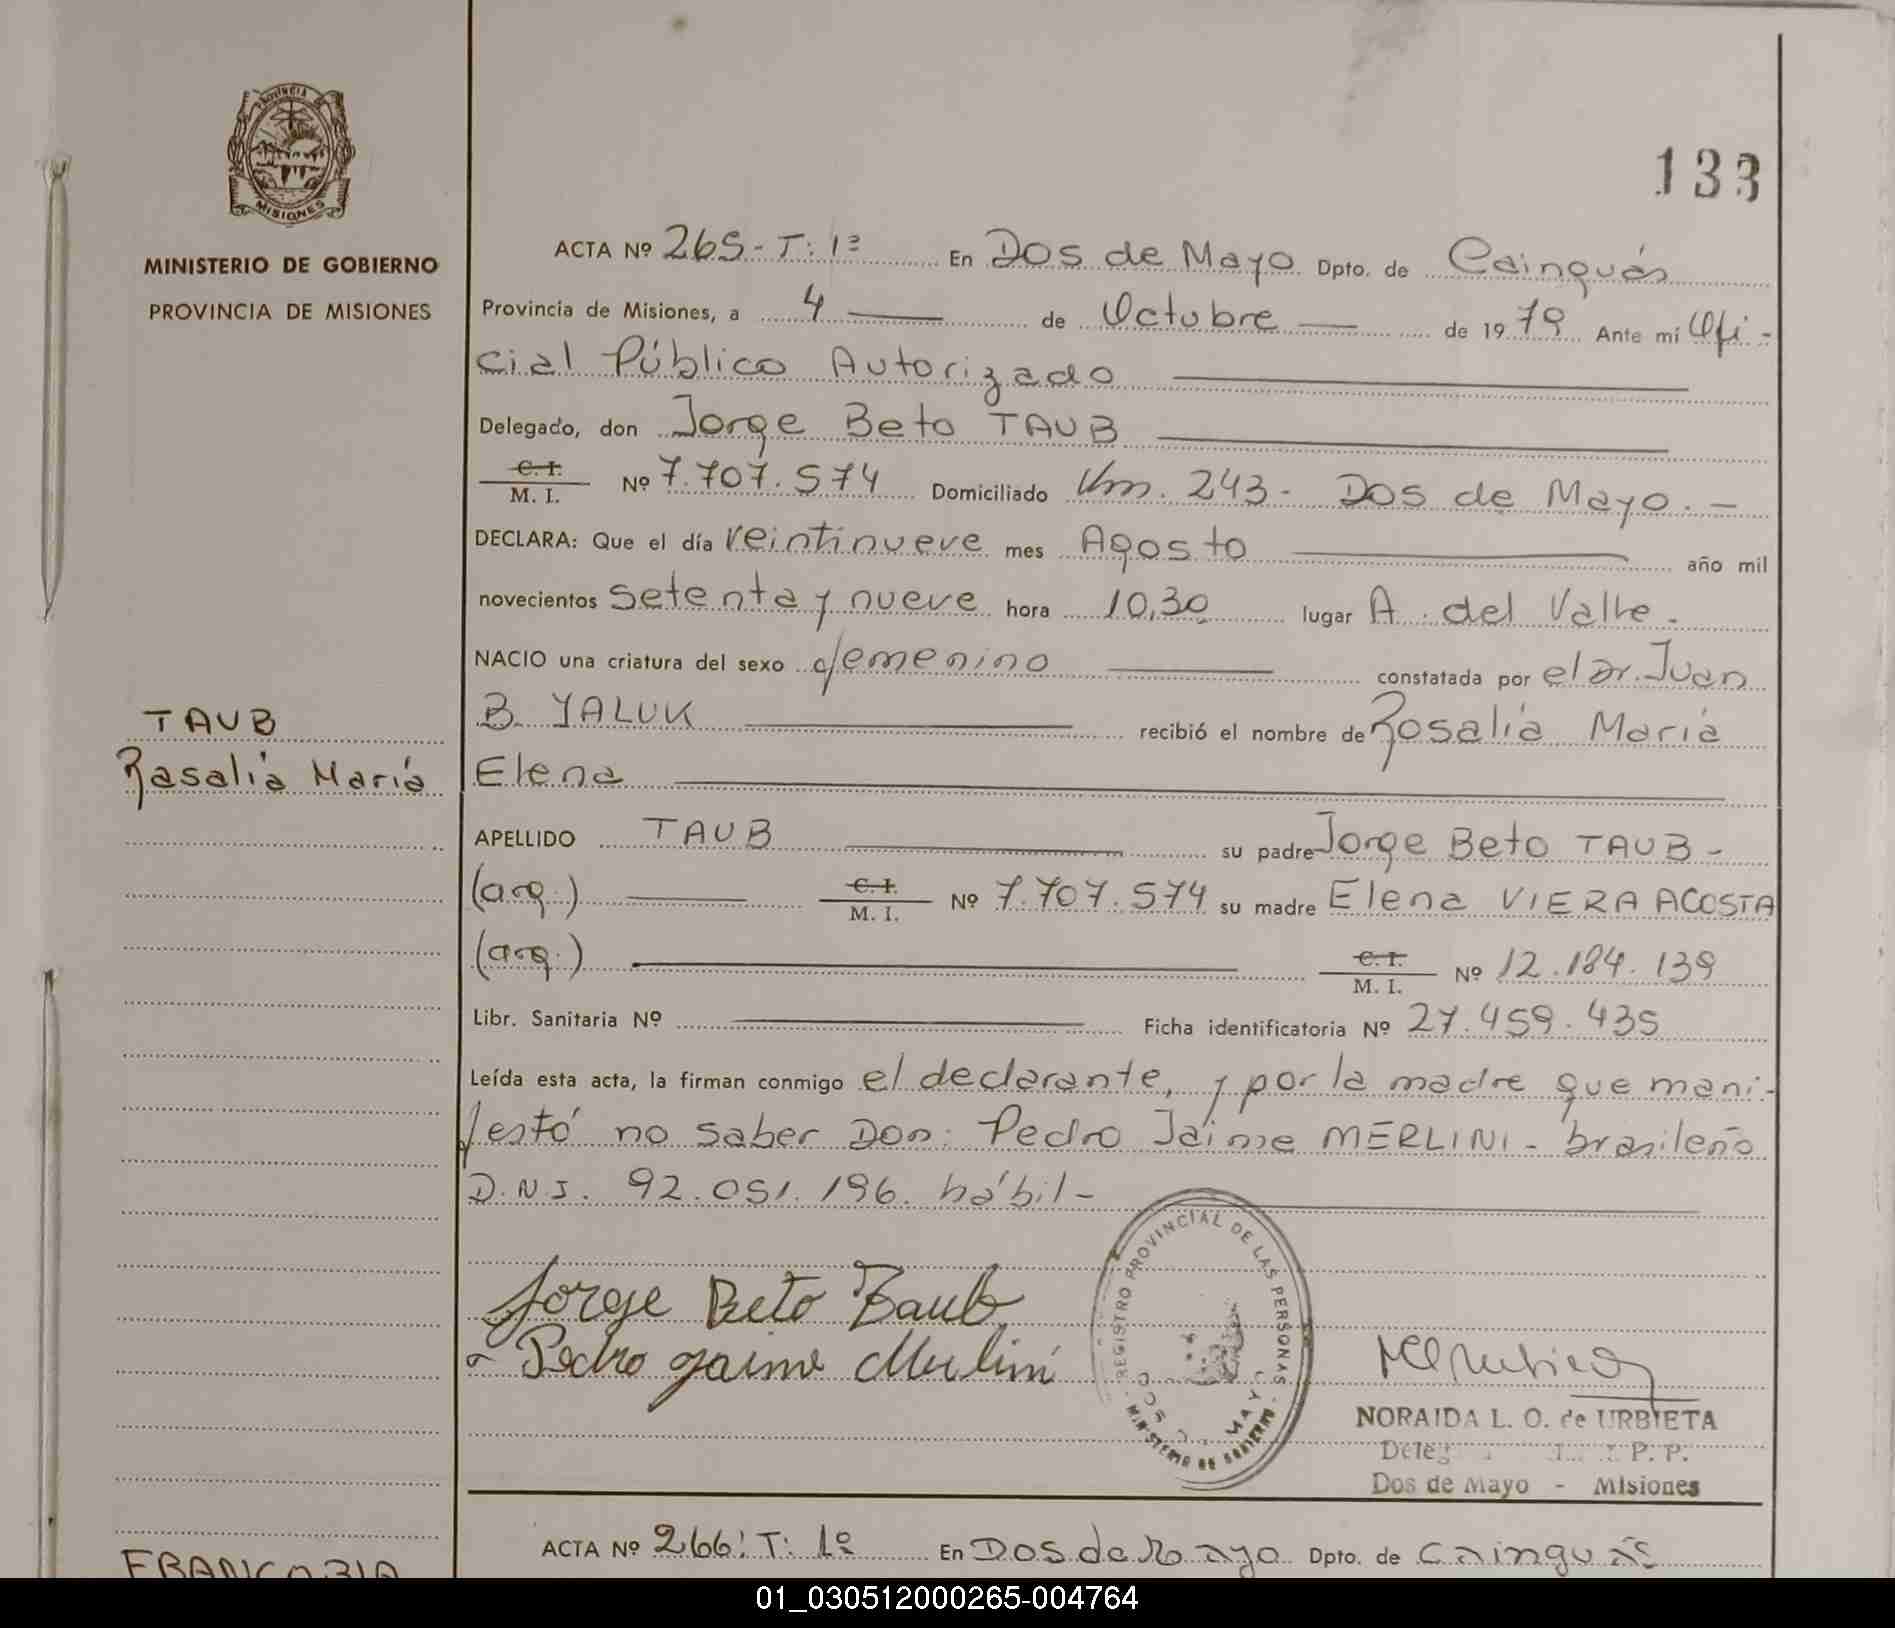 PROVINCIA DE
MISIONES
MINISTERIO DE GOBIERNO
PROVINCIA DE MISIONES
133
ACTA Nº 265 - T: 1º En Dos de Mayo Dpto. de Cainguás
Provincia de Misiones, a 4 — de Octubre — de 1979 Ante mi Ofi-
cial Público Autorizado
Delegado, don Jorge Beto TAUB
C. I. / M. I. Nº 7.707.574 Domiciliado Km. 243 - Dos de Mayo. -
DECLARA: Que el día veintinueve mes Agosto año mil
novecientos setenta y nueve hora 10,30 lugar A. del Valle.
NACIO una criatura del sexo femenino constatada por el Dr. Juan
B. YALUK recibió el nombre de Rosalía María
Elena
TAUB
Rasalía María
APELLIDO TAUB su padre Jorge Beto TAUB -
(arg.) C. I. / M. I. Nº 7.707.574 su madre Elena VIERA ACOSTA
(arg.) C. I. / M. I. Nº 12.184.139
Libr. Sanitaria Nº Ficha identificatoria Nº 27.459.435
Leída esta acta, la firman conmigo el declarante, y por la madre que mani-
festó no saber Don: Pedro Jaime MERLINI - brasileño
D.N.I. 92.051.196. hábil -
Jorge Beto Taub
Pedro Jaime Merlini
REGISTRO PROVINCIAL DE LAS PERSONAS
MINISTERIO DE GOBIERNO
NORAIDA L. O. de URBIETA
P. P.
Dos de Mayo - Misiones
ACTA Nº 266: T: 1º En Dos de Mayo Dpto. de Cainguás
01_030512000265-004764